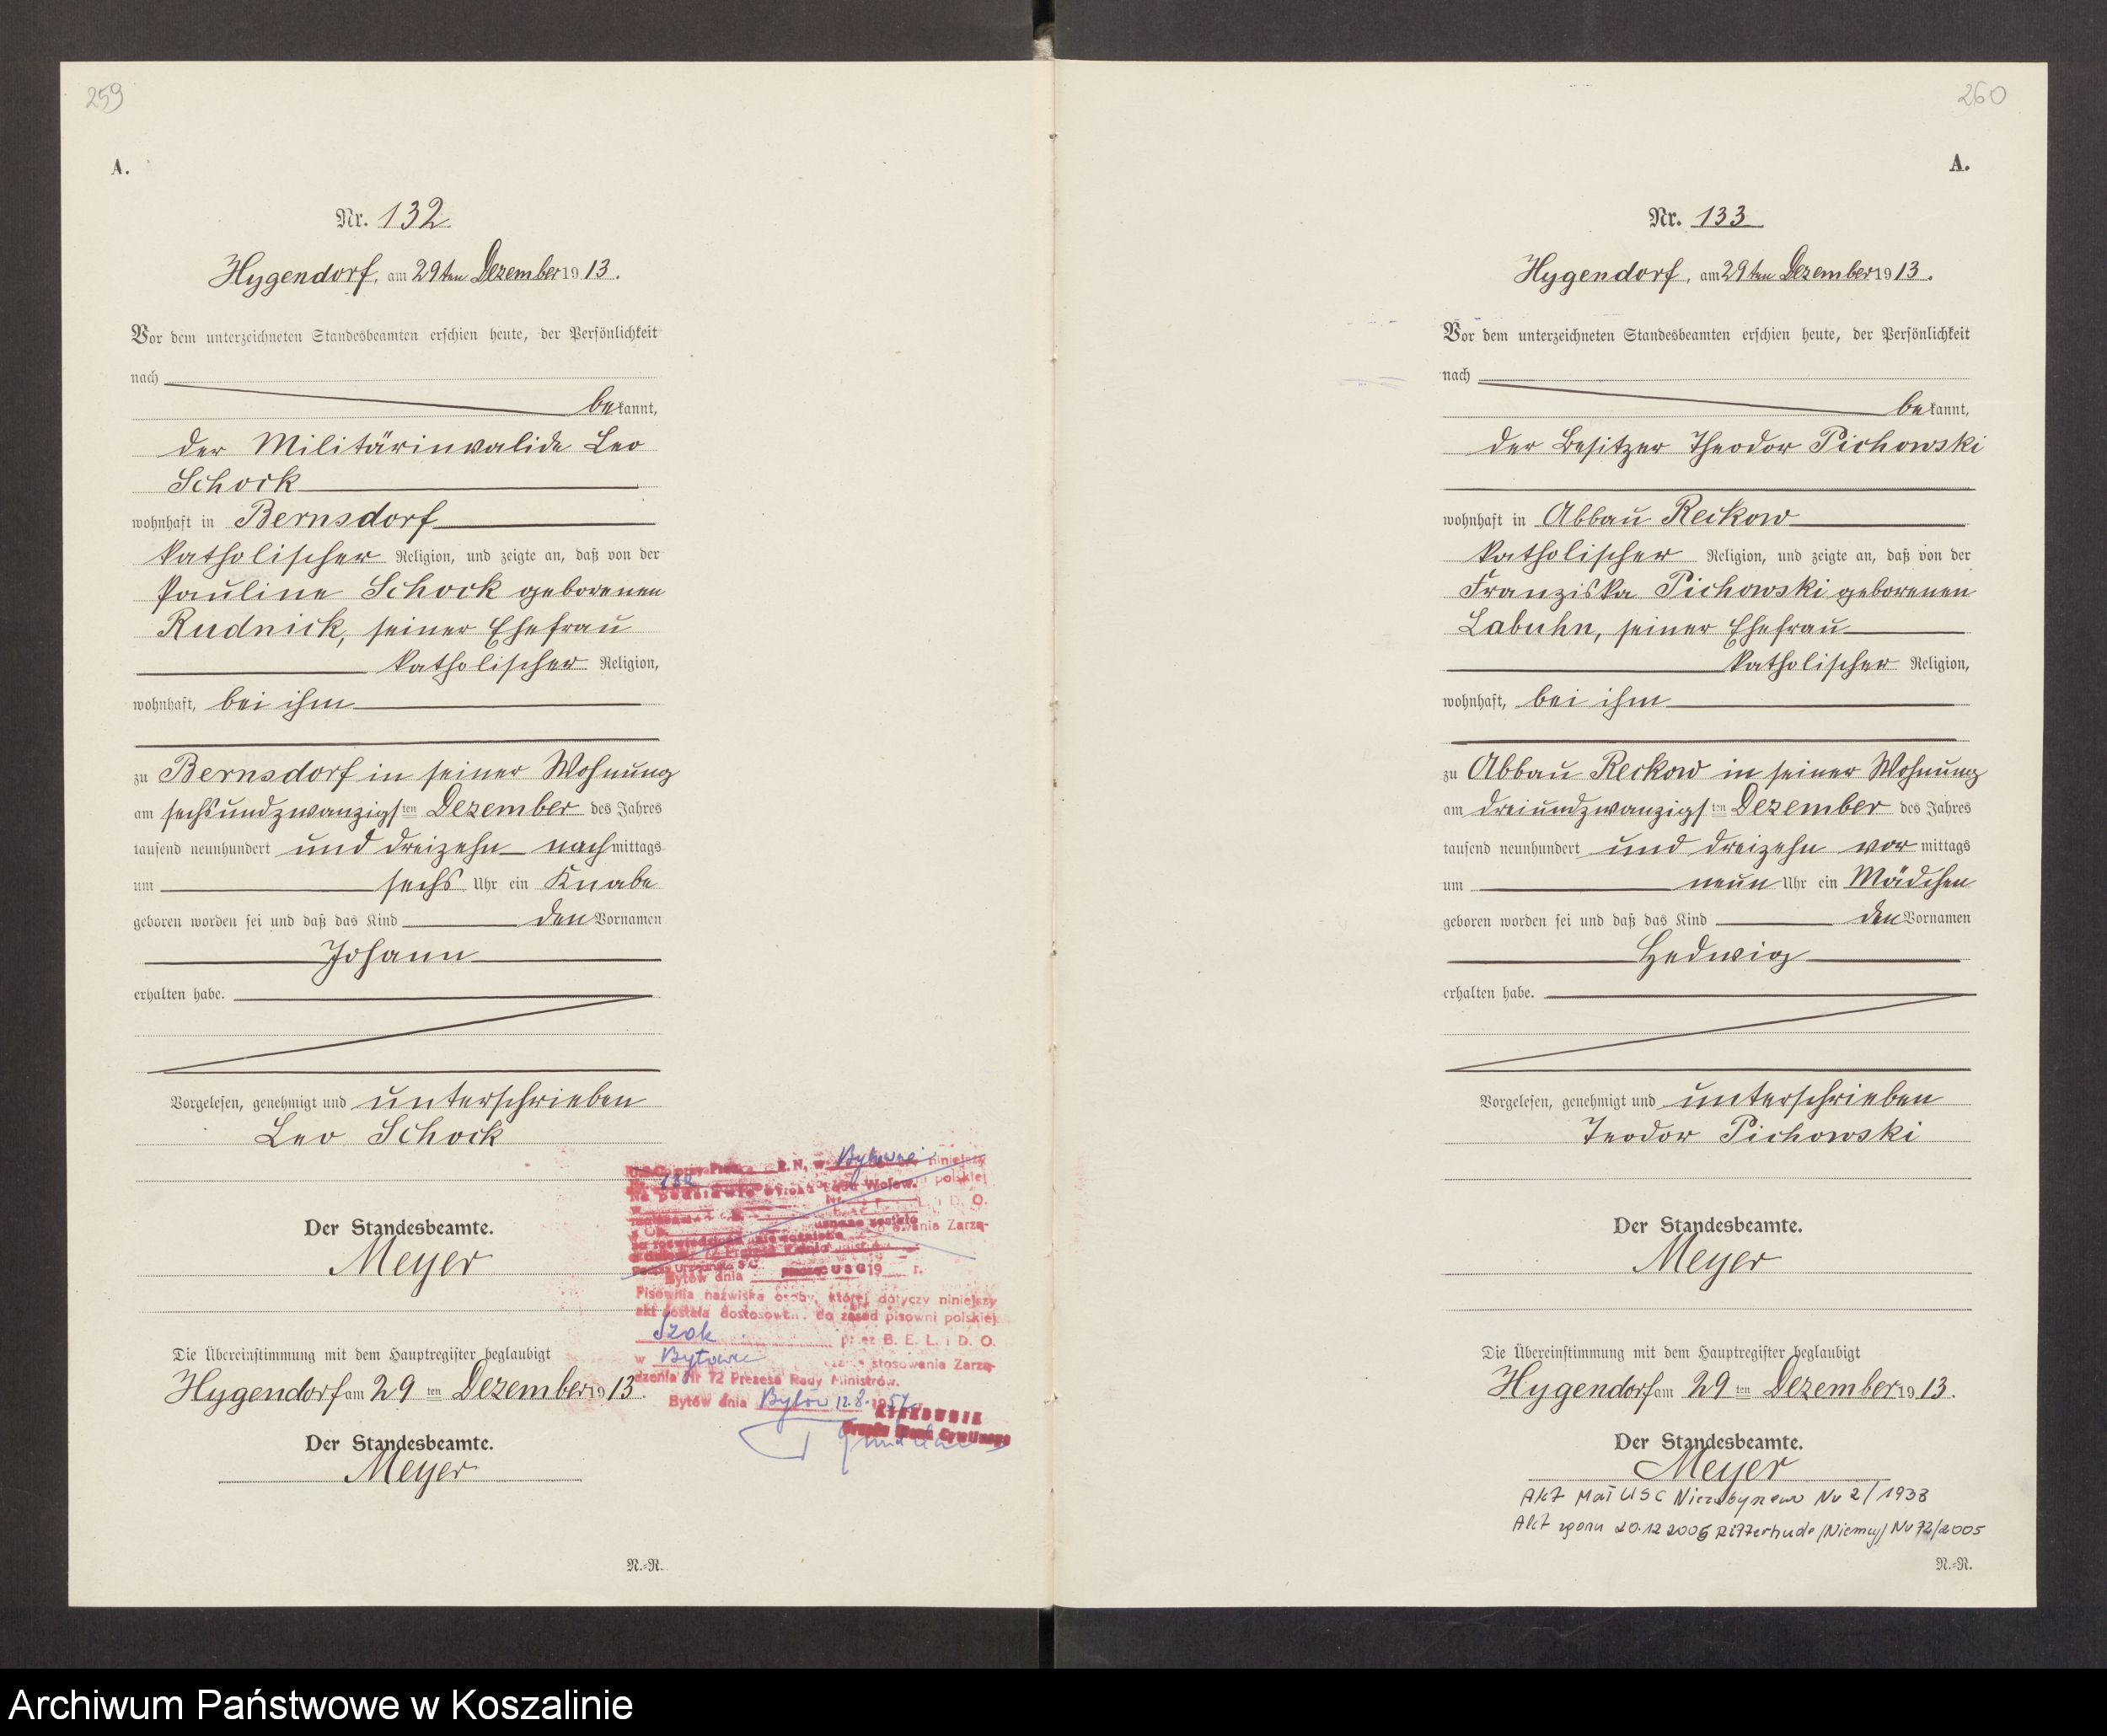 259
A.
Nr. 132
Hygendorf, am 29ten Dezember 1913.
Vor dem unterzeichneten Standesbeamten erschien heute, der Persönlichkeit
nach
bekannt,
der Militärinvalide Leo
Schock
wohnhaft in Bernsdorf
katholischer Religion, und zeigte an, daß von der
Pauline Schock geborenen
Rudnick, seiner Ehefrau
katholischer Religion,
wohnhaft, bei ihm
zu Bernsdorf in seiner Wohnung
am sechsundzwanzigsten Dezember des Jahres
tausend neunhundert und dreizehn nachmittags
um sechs Uhr ein Knabe
geboren worden sei und daß das Kind den Vornamen
Johann
erhalten habe.
Vorgelesen, genehmigt und unterschrieben
Leo Schock
Der Standesbeamte.
Meyer
Die Übereinstimmung mit dem Hauptregister beglaubigt
Hygendorf am 29ten Dezember 1913.
Der Standesbeamte.
Meyer
N.-N.
R. N. w Bytowie niniejszy
132
polskiej
D. O.
uznane zostało
Zarzą-
Bytów dnia 19 r.
Pisownia nazwiska osoby, której dotyczy niniejszy
akt została dostosow. do zasad pisowni polskiej
Szok przez B. E. L. i D. O.
w Bytowie stosowania Zarzą-
dzenia Nr 72 Prezesa Rady Ministrów.
Bytów dnia Bytów 12.8.1957
KIEROWNIK
Urzędu Stanu Cywilnego
260
A.
Nr. 133
Hygendorf, am 29ten Dezember 1913.
Vor dem unterzeichneten Standesbeamten erschien heute, der Persönlichkeit
nach
bekannt,
der Besitzer Theodor Pichowski
wohnhaft in Abbau Reckow
katholischer Religion, und zeigte an, daß von der
Franziska Pichowski geborenen
Labuhn, seiner Ehefrau
katholischer Religion,
wohnhaft, bei ihm
zu Abbau Reckow in seiner Wohnung
am dreiundzwanzigsten Dezember des Jahres
tausend neunhundert und dreizehn vormittags
um neun Uhr ein Mädchen
geboren worden sei und daß das Kind den Vornamen
Hedwig
erhalten habe.
Vorgelesen, genehmigt und unterschrieben
Teodor Pichowski
Der Standesbeamte.
Meyer
Die Übereinstimmung mit dem Hauptregister beglaubigt
Hygendorf am 29ten Dezember 1913.
Der Standesbeamte.
Meyer
Akt Mał USC Niezabyszewo Nr 2/1938
Akt zgonu 20.12 2005 Ritterhude /Niemcy/ Nr 72/2005
N.-N.
Archiwum Państwowe w Koszalinie